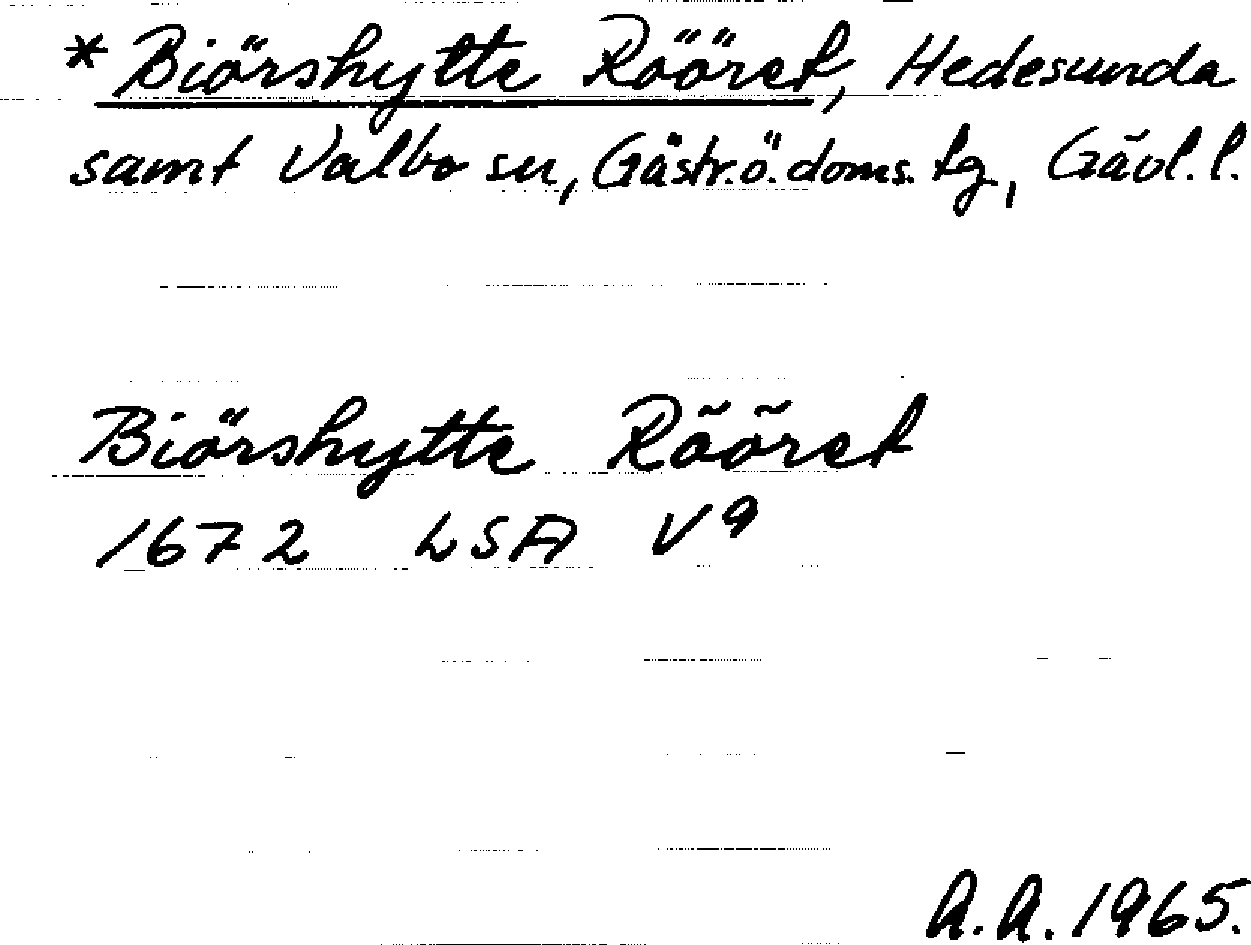 * Biörshytte Röören, Hedesunda
samt Valbo sn, Gästr.ö.doms.tg, Gävl.l.
Biörshytte Rööret
1672 LSA V 9
A.A. 1965.